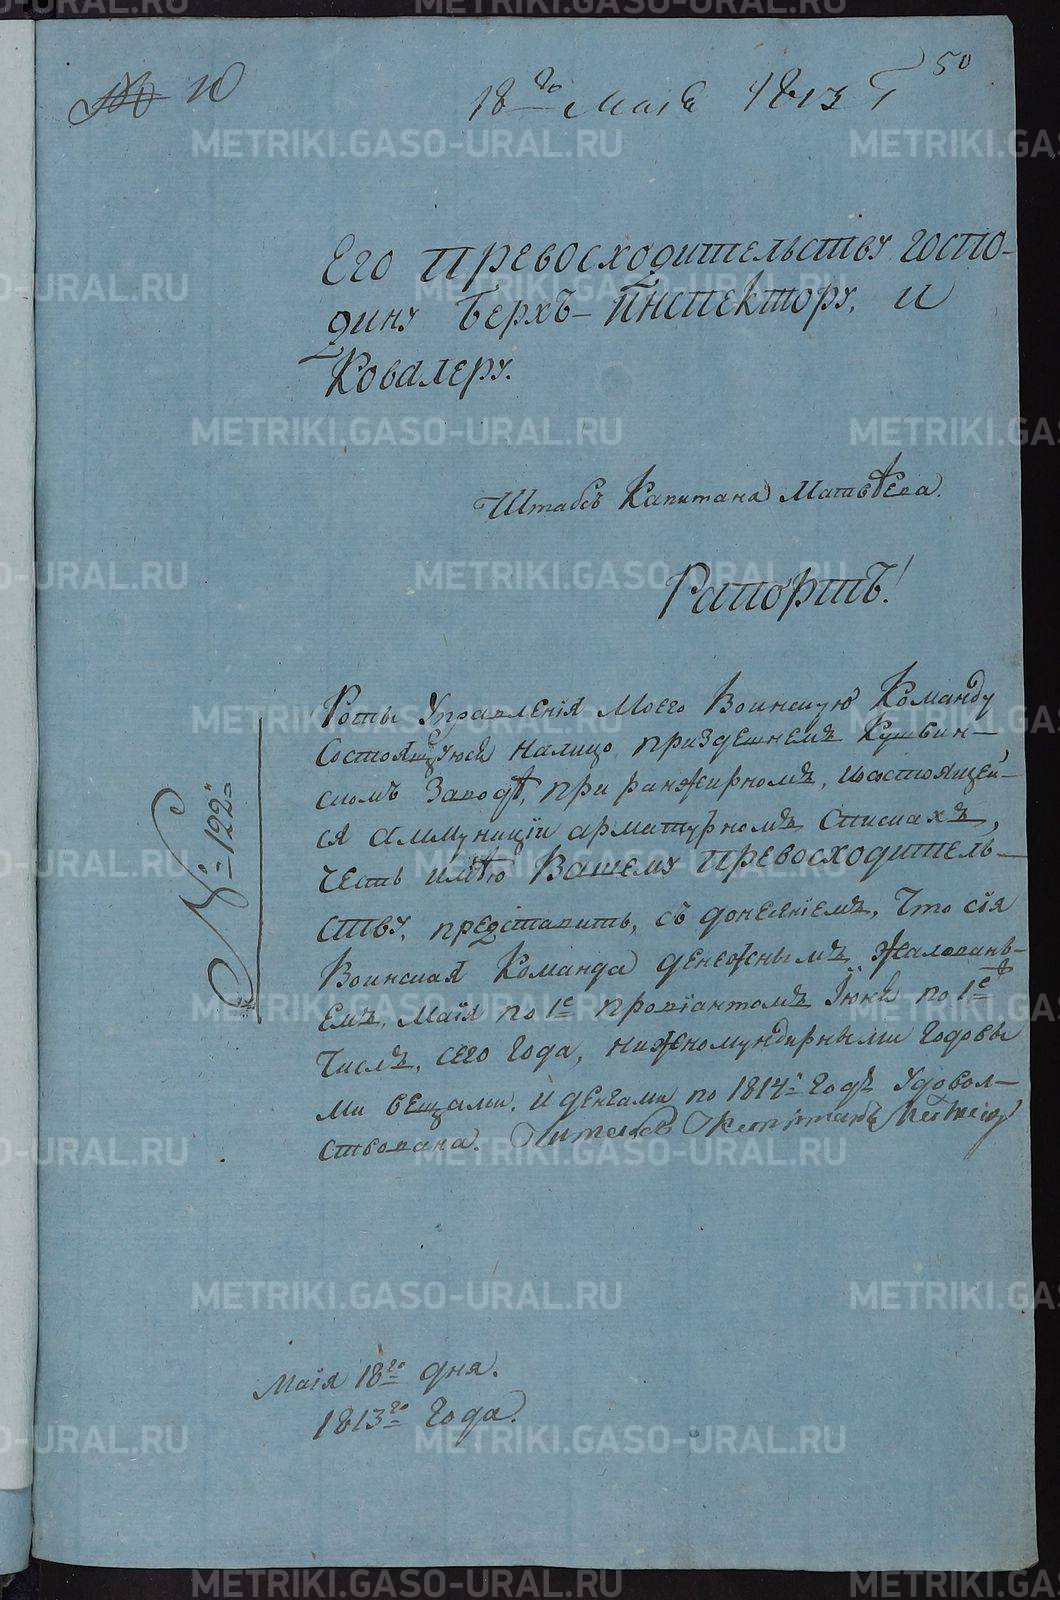 10
50
18го Маія 1813 Г
Его превосходительству Госпо-
дину Берхъ-Инспектору, и
Ковалеру.
Штабсъ Капитана Матвѣева.
Рапортъ!
№ 122
Роты Управленія Моего Воинскую Команду
Состоящуюся налицо приздешнемъ Кушвин-
скомъ Заводѣ, при ранжирномъ, исостоящей-
ся аммуниціи арматурномъ спискахъ,
честь имѣю Вашему превосходитель-
ству, представить, съ донесніемъ, что сія
Воинская Команда денежнымъ Жаловань-
емъ, Маія по 1е провіантомъ Іюня по 1е
Числъ, сего года, нижномундирными годовы
ми вещами, и денгами по 1814й годъ удовол-
ствована. Штабсъ Капитанъ Матвѣев
Маія 18го дня.
1813го Года.
METRIKI.GASO-URAL.RU